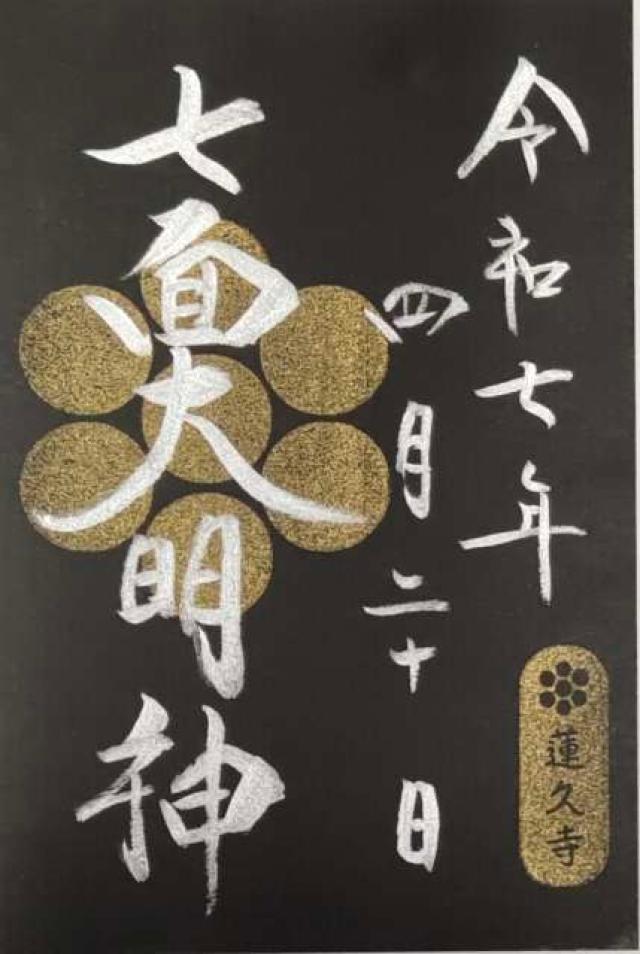 令和七年
四月二十日
七面大明神
蓮久寺